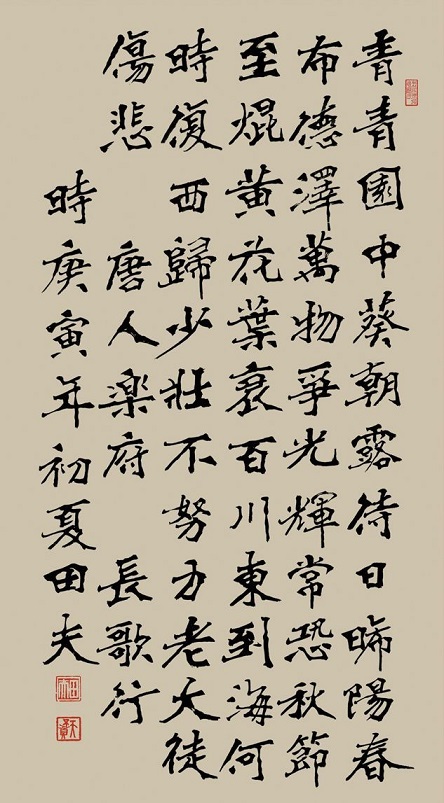 青青園中葵朝露待日晞陽春
布德澤萬物爭光輝常恐秋節
至焜黄花葉衰百川東到海何
時復西歸少壯不努力老大徒
傷悲 唐人楽府 長歌行
時庚寅年初夏田夫